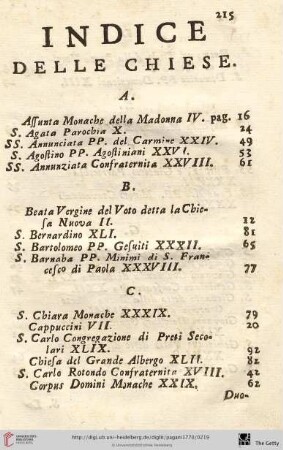 215
INDICE
DELLE CHIESE.
A.
Assunta Monache della Madonna IV. pag. 16
S. Agata Parochia X. 24
SS. Annunciata PP. del Carmine XXIV. 49
S. Agostino PP. Agostiniani XXVI. 53
SS. Annunziata Confraternita XXVIII. 61
B.
Beata Vergine del Voto detta la Chie-
sa Nuova II. 12
S. Bernardino XLI. 81
S. Bartolomeo PP. Gesuiti XXXII. 65
S. Barnaba PP. Minimi di S. Fran-
cesco di Paola XXXVIII. 77
C.
S. Chiara Monache XXXIX. 79
Cappuccini VII. 20
S. Carlo Congregazione di Preti Seco-
lari XLIX. 92
Chiesa del Grande Albergo XLII. 82
S. Carlo Rotondo Confraternita XVIII. 42
Corpus Domini Monache XXIX. 62
Duo-
http://digi.ub.uni-heidelberg.de/diglit/pagani1770/0219
© Universitätsbibliothek Heidelberg
The Getty